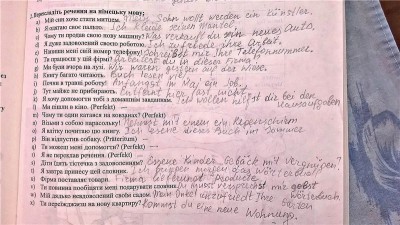 Перекладіть речення на німецьку мову:
а) Мій син хоче стати митцем. Mein Sohn wollt werden ein Künstler.
б) Я одягаю своє пальто. Ich kleide seinen Mantel.
в) Чому ти продав свою нову машину? Was verkaufst du ein neues Auto.
г) Я дуже задоволений своєю роботою. Ich zufriede ihre Arbeit.
Напиши мені свій номер телефону! Schreibst mir Ihre Telefonnummer.
Ти працюєш у цій фірмі? Arbeitest du in dieser Firma?
Ми були вчора на лузі. Wir waren gestern auf der Wiese.
Книгу багато читають. Buch lesen viel.
Почни в травні роботу! Anfangst im Mai ein Job.
Тут майже не прибирають. hier fast nicht.
Я хочу допомогти тобі з домашнім завданням. Ich wollen hilfst dir bei den Hausaufgaben
Ми пішли в кіно. (Perfekt)
Чому ти один катався на ковзанах? (Perfekt)
Візьми з собою парасольку! Nehmst mit einem ein Regenschirm
Я влітку прочитаю цю книгу. Ich lesene dieses Buch im Sommer
Він відпустив собаку. (Präteritum)
Ти можеш мені допомогти? (Perfekt)
Я не програли речення. (Perfekt)
Діти їдять тістечка з задоволенням! Essene Kinder Gebäck mit Vergnügen?
Я завтра принесу цей словник. Ich morgen das Wörterbuch.
Фірма поставляє товари. Firma lieferungt Produkte
Ти повинна пообіцяти мені подарувати словник. Du musst versprichst mir gebst Wörterbuch.
Мій дядько незадоволений своїм садом. Mein Onkel unzufriedt Ihre Garten
Ти переїжджаєш на нову квартиру? kommst du eine neue Wohnung.